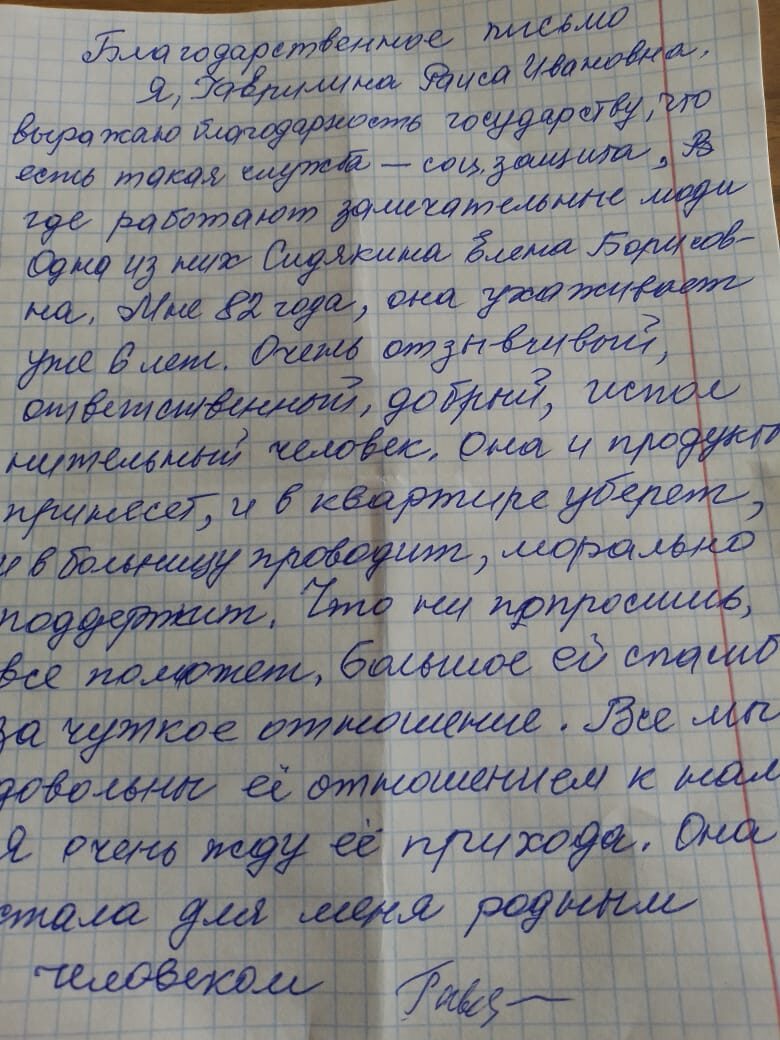 Благодарственное письмо
Я, Гаврилина Раиса Ивановна,
выражаю благодарность государству, что
есть такая служба — соц. защита, В
где работают замечательные люди
Одна из них Сидякина Елена Борисов-
на. Мне 82 года, она ухаживает
уже 6 лет. Очень отзывчивый,
ответственный, добрый, испол
нительный человек. Она и продукты
принесет, и в квартире уберет,
и в больницу проводит, морально
поддержит. Что ни попросишь,
все поможет. Большое ей спасибо
за чуткое отношение. Все мы
довольны её отношением к нам
Я очень жду её прихода. Она
стала для меня родным
человеком